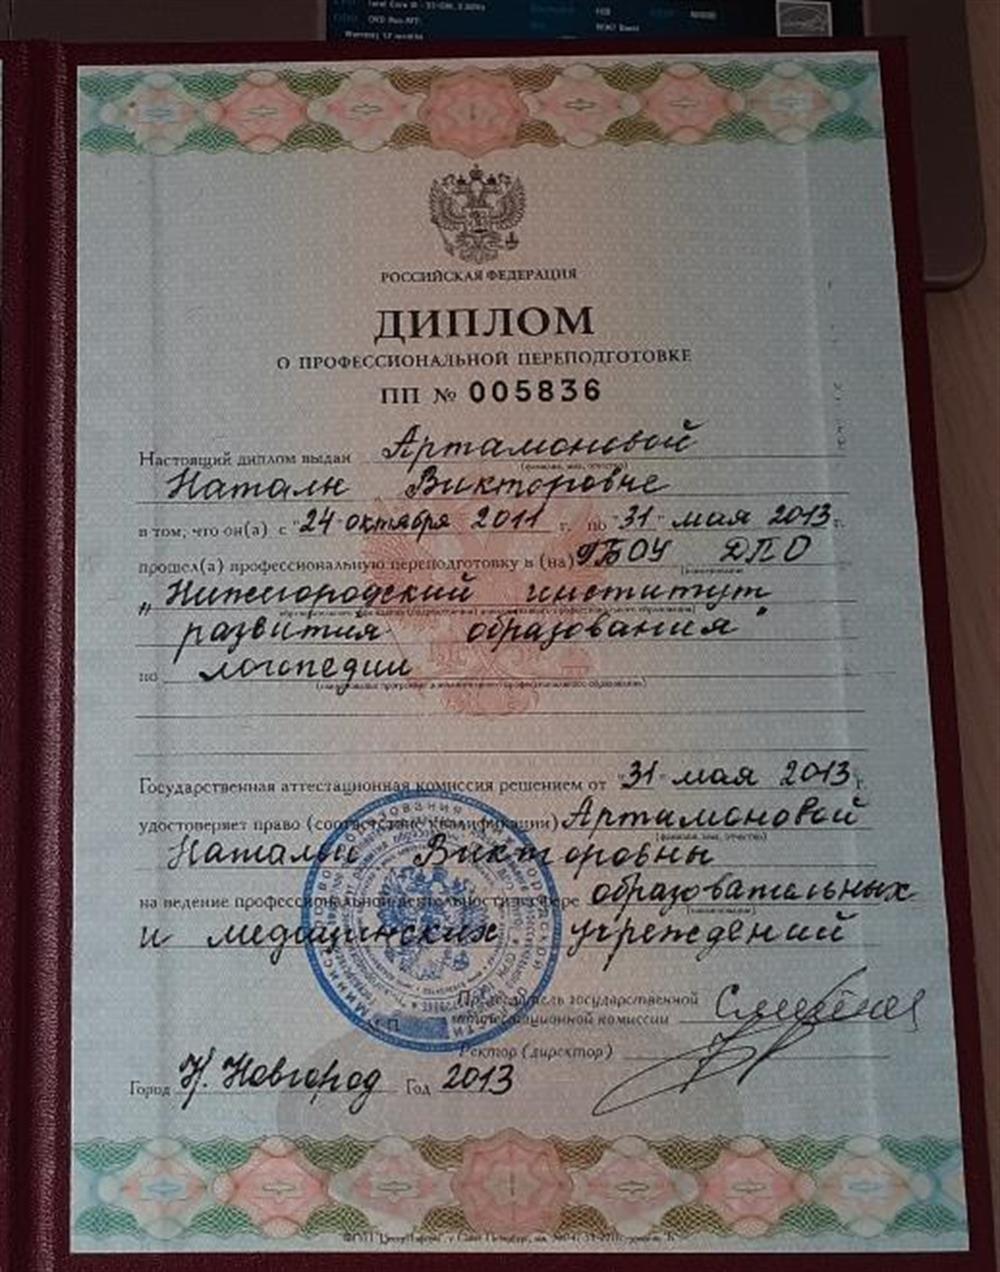 РОССИЙСКАЯ ФЕДЕРАЦИЯ
ДИПЛОМ
О ПРОФЕССИОНАЛЬНОЙ ПЕРЕПОДГОТОВКЕ
ПП № 005836
Настоящий диплом выдан Артамоновой
(фамилия, имя, отчество)
Наталье Викторовне
в том, что он(а) с "24" октября 2011 г. по "31" мая 2013 г.
прошел(а) профессиональную переподготовку в (на) ГБОУ ДПО
"Нижегородский институт
развития образования"
по логопедии
Государственная аттестационная комиссия решением от "31" мая 2013 г.
удостоверяет право (соответствие квалификации) Артамоновой
(фамилия, имя, отчество)
Натальи Викторовны
на ведение профессиональной деятельности в сфере образовательных
и медицинских учреждений
Председатель государственной
аттестационной комиссии
М.П.
Ректор (директор)
Город Н. Новгород Год 2013